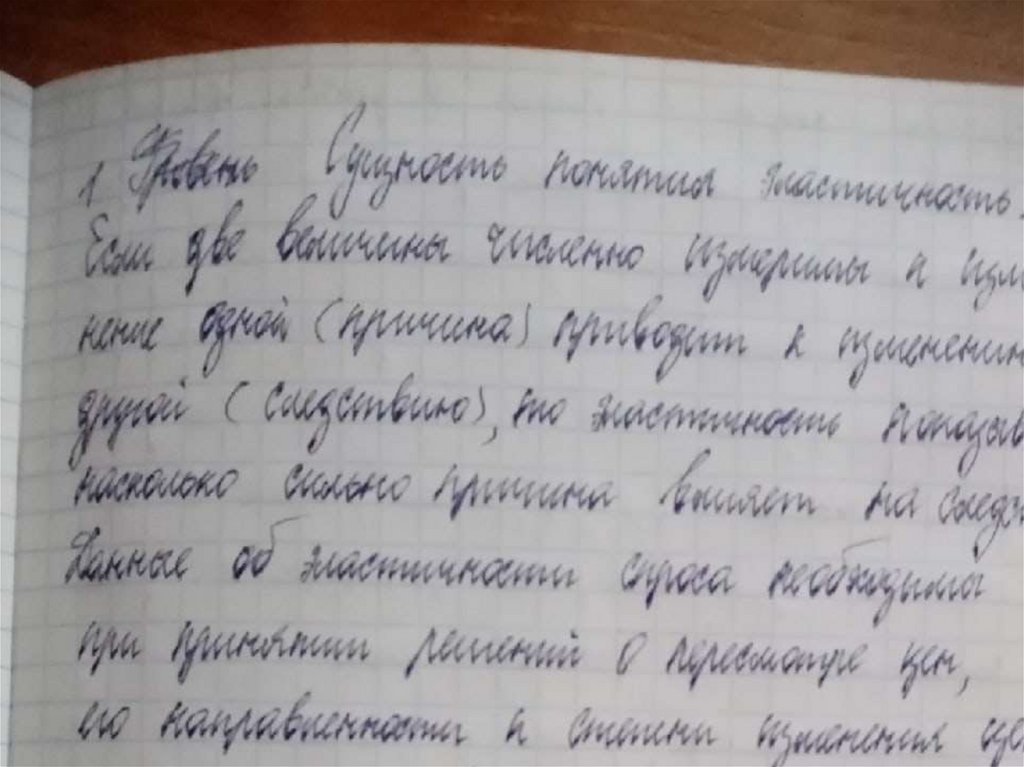 1 Уровень Сущность понятия эластичность.
Если две величины численно измеримы и изме
нение одной (причина) приводит к изменению
другой (следствию), то эластичность показыв
насколько сильно причина влияет на следс
Данные об эластичности спроса необходимы
при принятии решений о пересмотре цен,
его направленности и степени изменения це